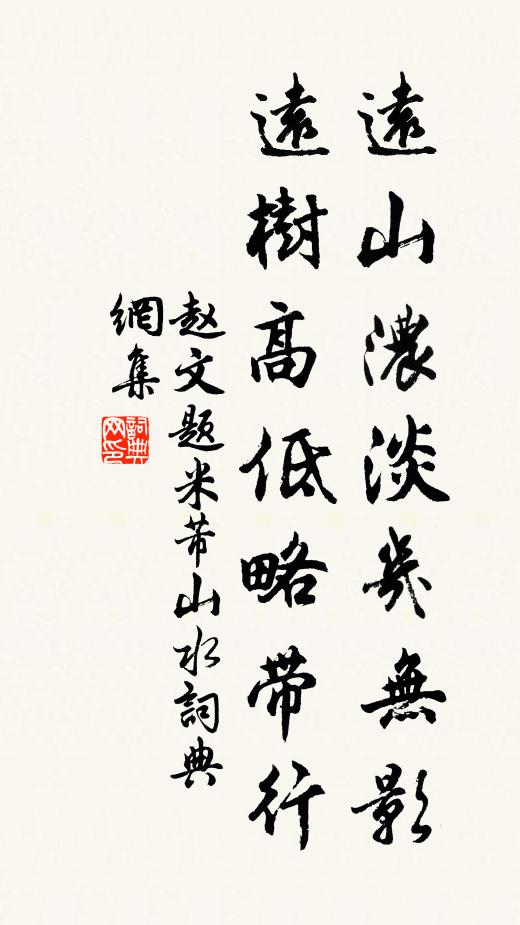 遠山濃淡幾無影
遠樹高低略带行
赵文题米芾山水詞典
網集
詞典
网印